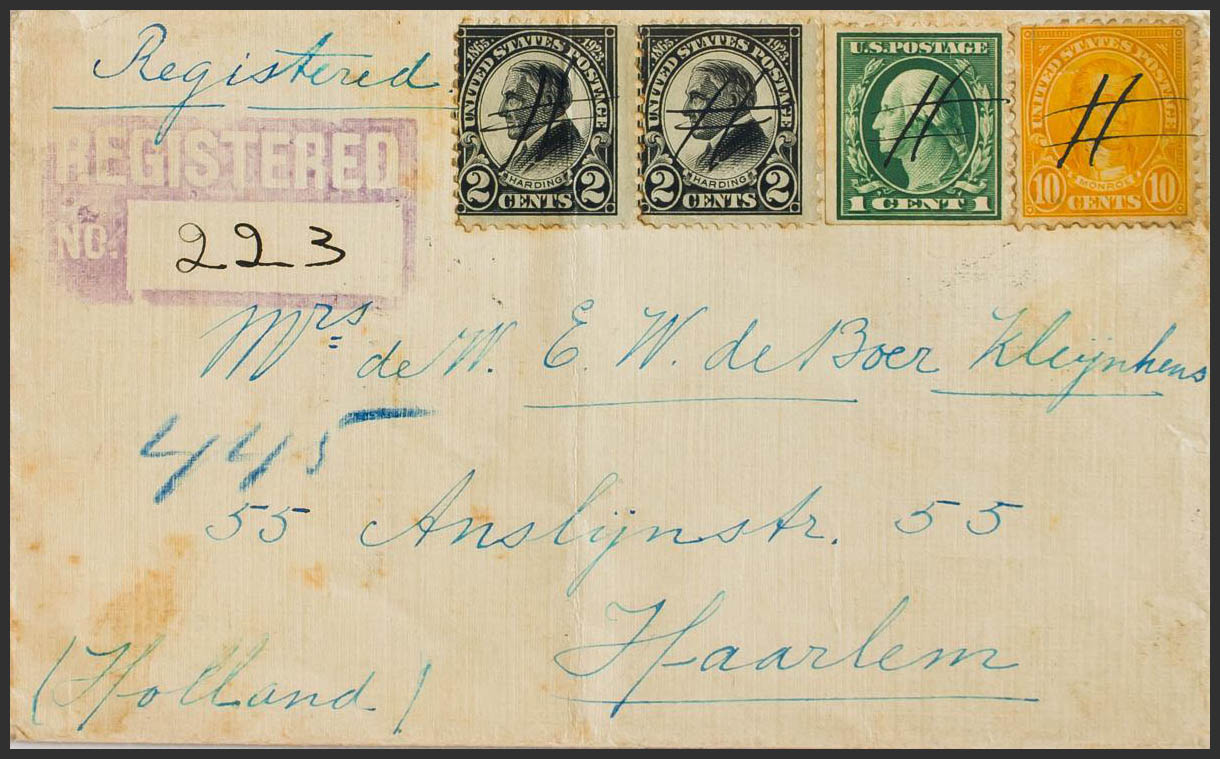 Registered
1865 UNITED STATES POSTAGE 1923
HARDING
2 CENTS 2
1865 UNITED STATES POSTAGE 1923
HARDING
2 CENTS 2
U.S. POSTAGE
1 CENT 1
UNITED STATES POSTAGE
MONROE
10 CENTS 10
REGISTERED
NO. 223
Mrs de W. E. W. de Boer Kleijnhens
445
55 Anslijnstr. 55
Haarlem
(Holland)